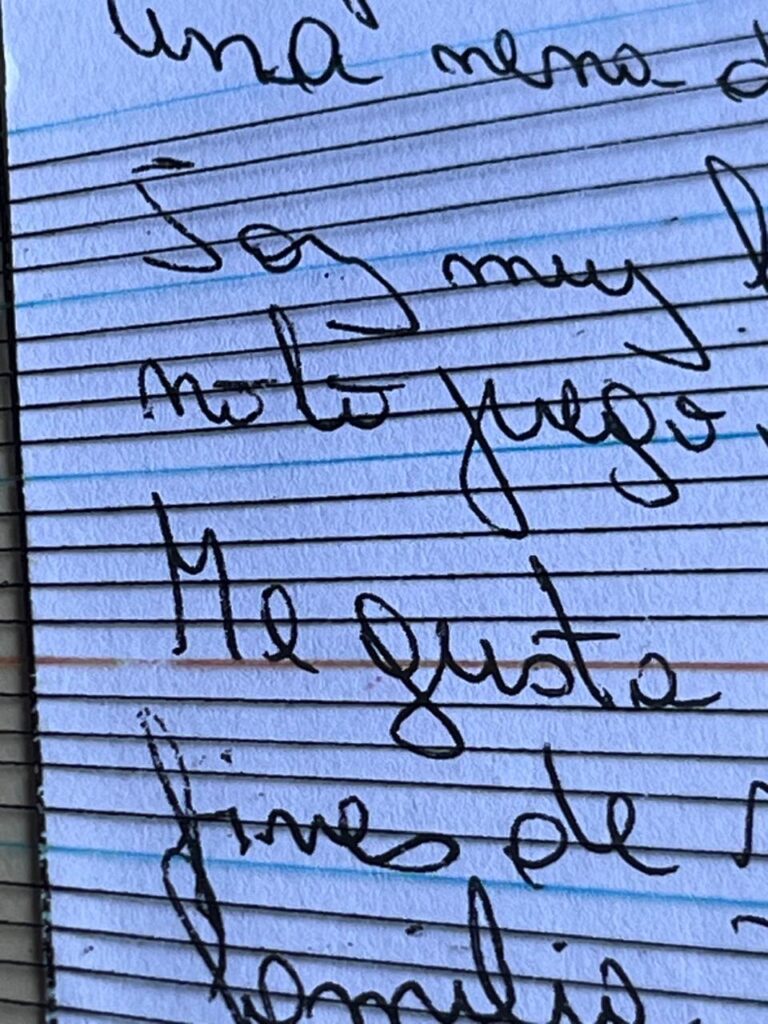 una nena
Soy muy
no lo juego.
Me gusta
fines de
familia.